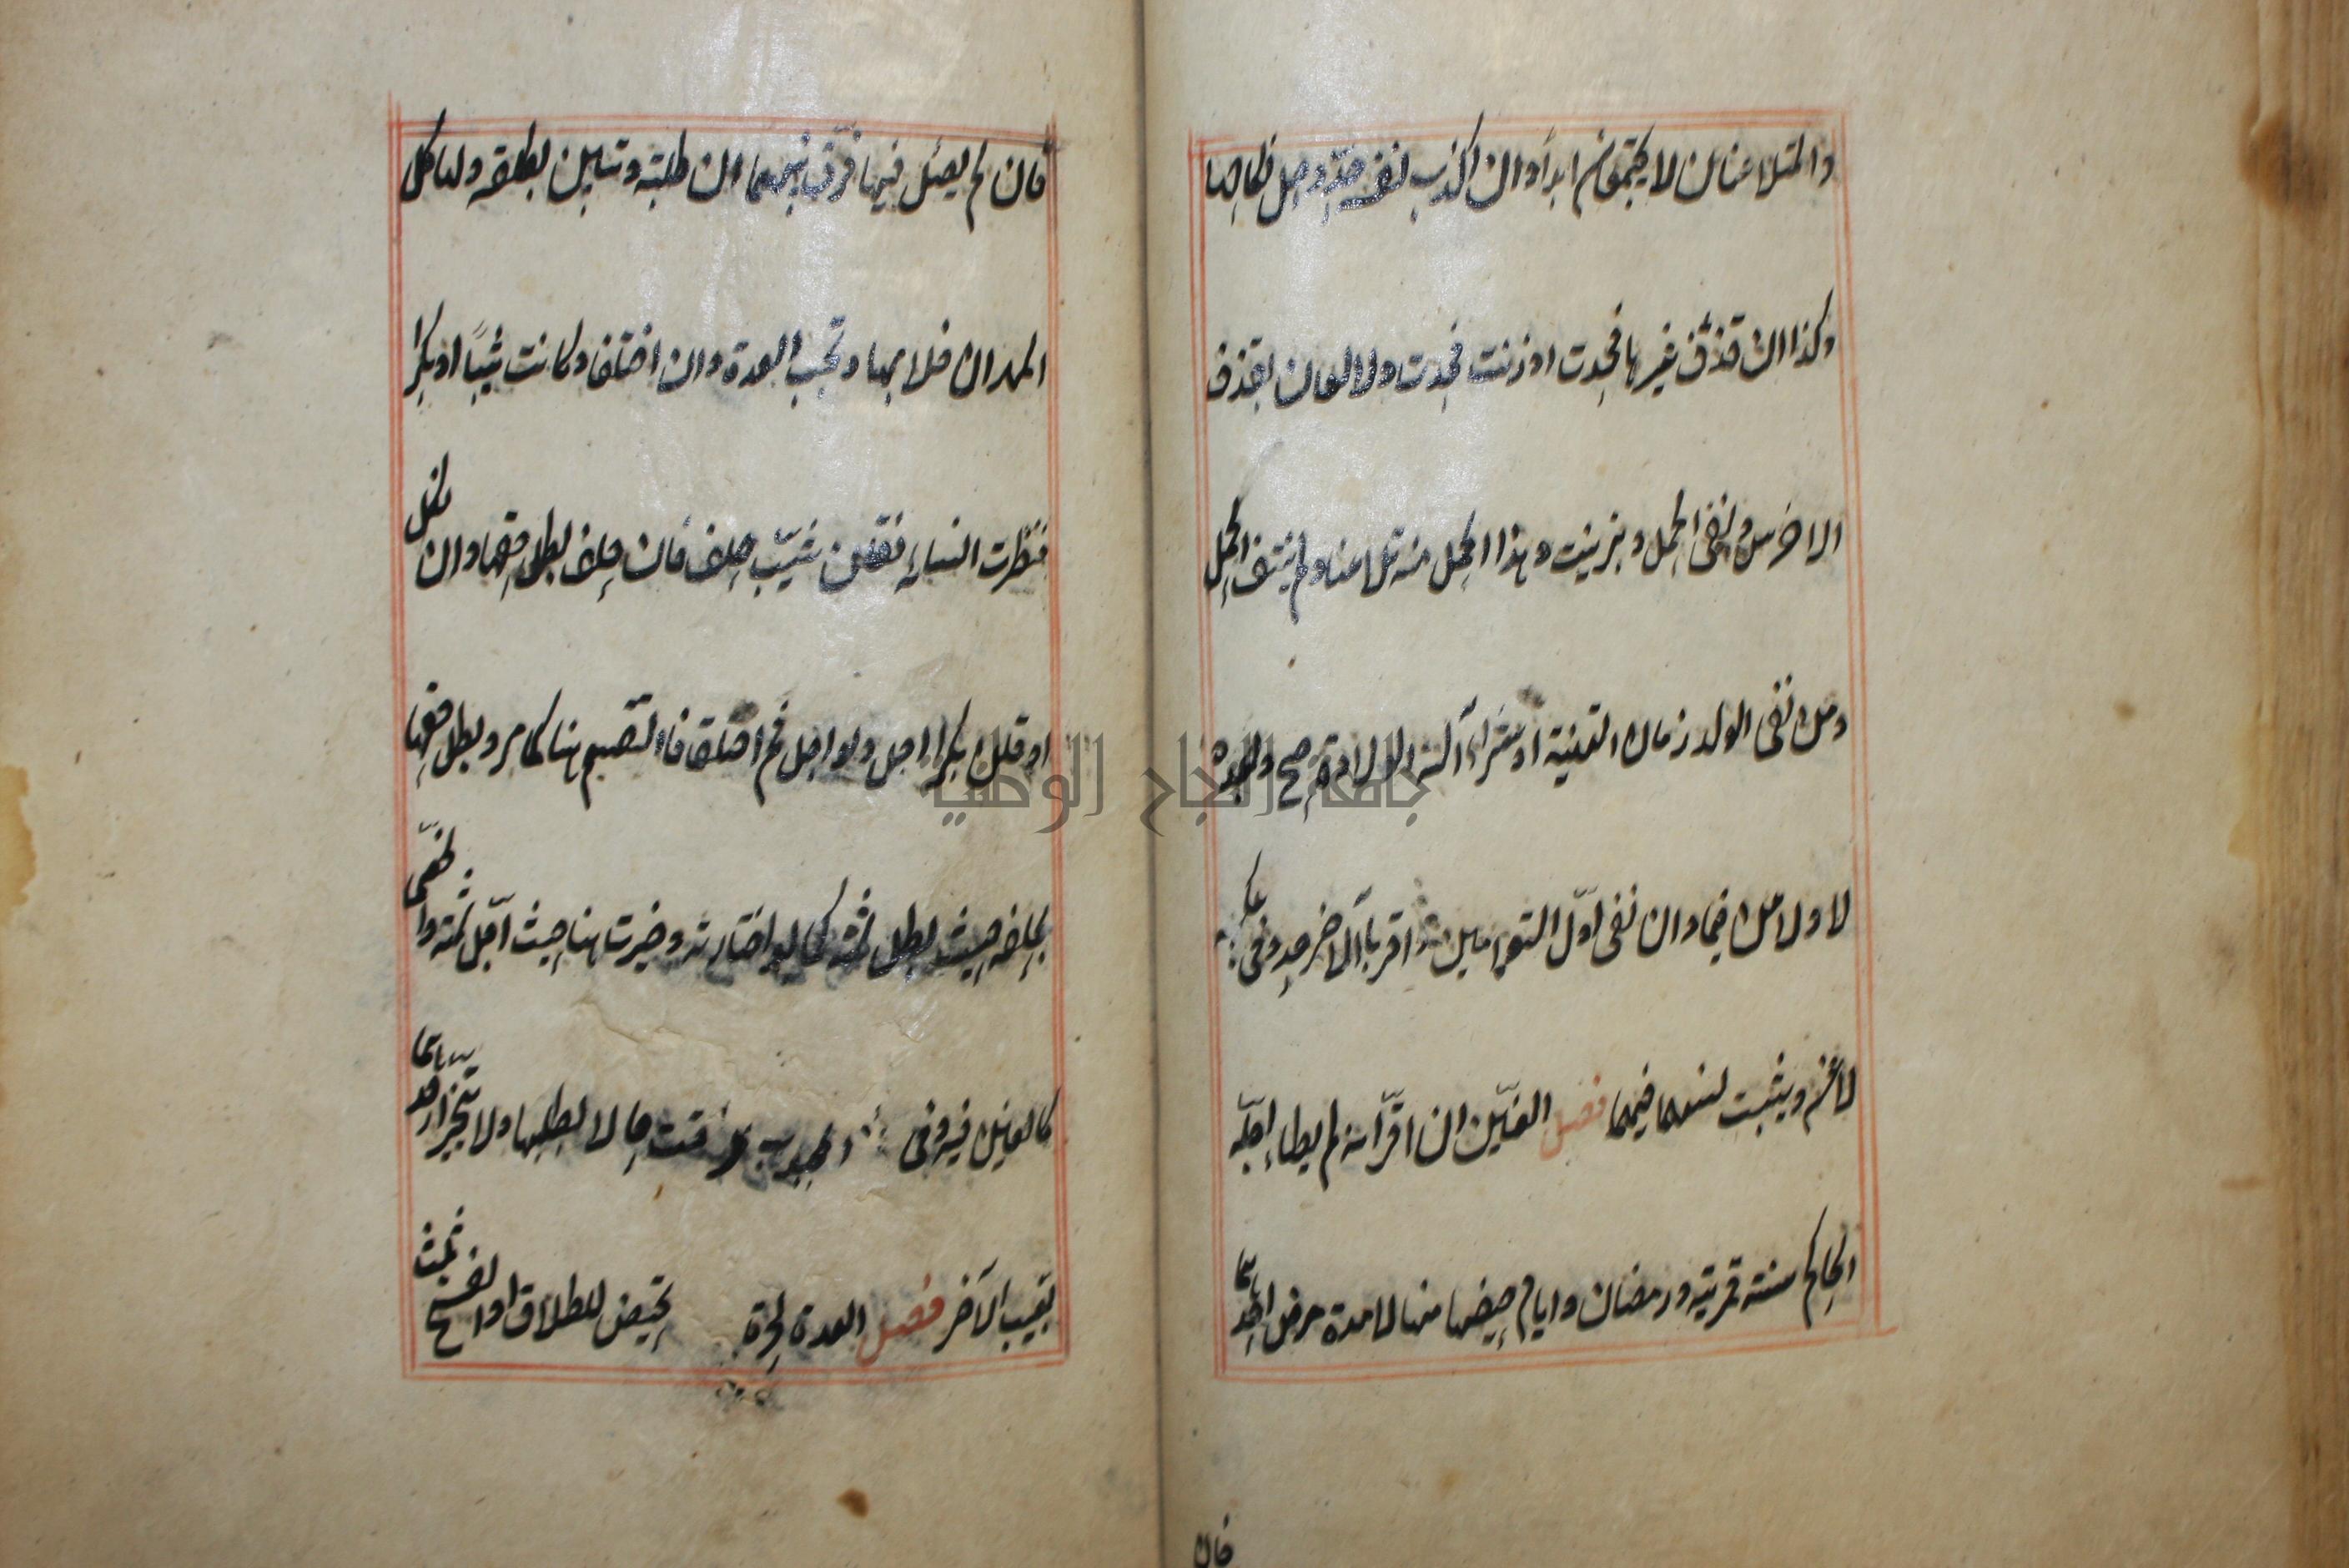 والمتلاعنان لا يجتمعان ابدأ وان اكذب نفسه حدّ وحل نكاحها
وكذا ان قذف غيرها فحدت او زنت فحدت ولا لعان بقذف
الاخرس ونفى الحمل وبزنيت وهذا الحمل منه تلاعنا ولم ينتف الحمل
ومن نفى الولد زمان التهنية او شراء آلته للولادة صح وبعده
لا ولاعن فيهما وان نفى اوّل التوامين واقر بالآخر حد وفى عكسه
لاعن ويثبت نسبهما فيهما فصل العنّين ان اقرّ انه لم يطأ اجّله
الحاكم سنة قمرية ورمضان وايام حيضها منها لا مدة مرض احدهما
فان
فان لم يصل فيها فرق بينهما ان طلبته وتبين بطلقة ولها كل
المهر ان خلا بها وتجب العدة وان اختلفا وكانت ثيبًا او بكرا
فنظرت النساء فقلن ثيّب حلف فان حلف بطل حقها وان نكل
او قلن بكر اجل ولو اجل ثم اختلفا فالتقسيم هنا كما مر وبطل حقها
بحلفه حيث بطل ثمة كما لو اختارته وخيرت هنا حيث اجّل ثمة والخصى
كالعنين فيه وفى المجبوب فرقت حالا بطلبها ولا يتخير احدهما
بعيب الآخر فصل العدة لحرة تحيض للطلاق او الفسخ ثلث
جامعة النجاح الوطنية